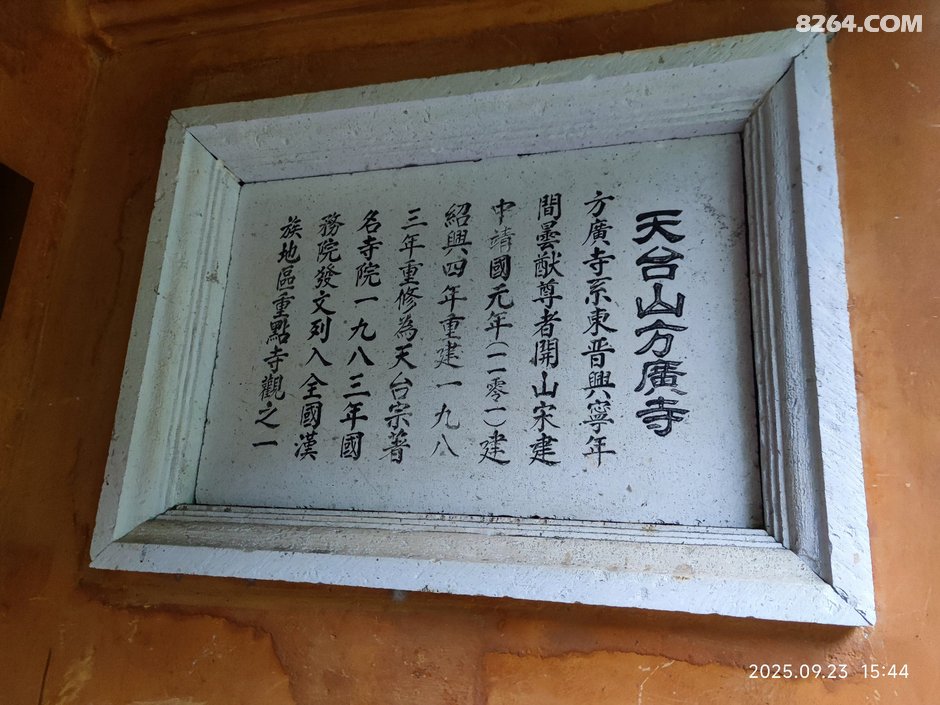 8264.COM
天台山方廣寺
方廣寺系東晉興寧年
間曇猷尊者開山宋建
中靖國元年(一一零一)建
紹興四年重建一九八
三年重修為天台宗著
名寺院一九八三年國
務院發文列入全國漢
族地區重點寺觀之一
2025.09.23 15:44